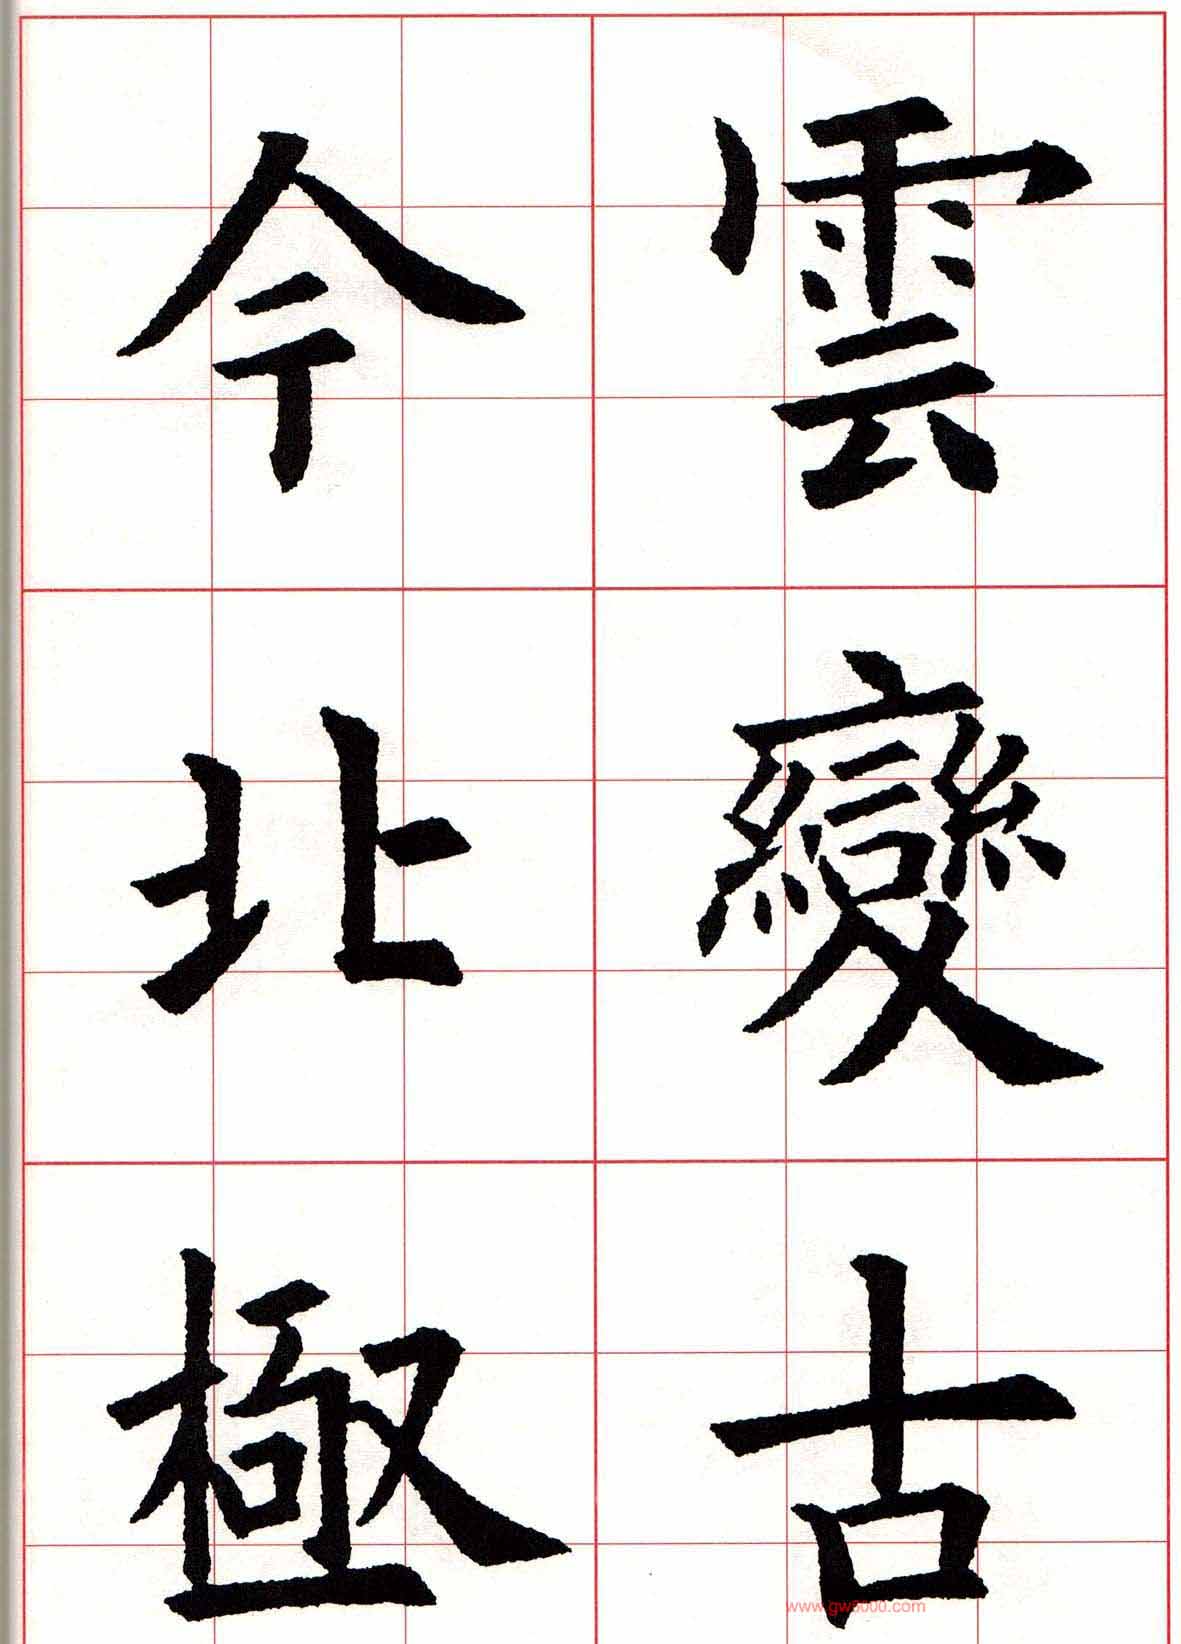 雲變古
今北極
www.gw5000.com